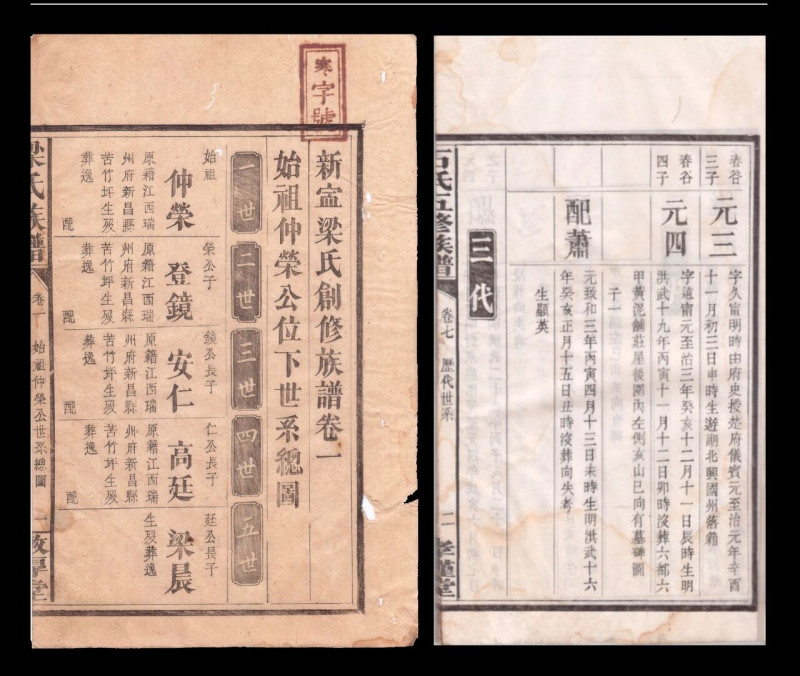 寒字號
新甯梁氏創修族譜卷一
始祖仲榮公位下世系總圖
一世
二世
三世
四世
五世
始祖
仲榮
原籍江西瑞
州府新昌縣
苦竹坪生殁
葬逸
配
榮公子
登鏡
原籍江西瑞
州府新昌縣
苦竹坪生殁
葬逸
配
鏡公長子
安仁
原籍江西瑞
州府新昌縣
苦竹坪生殁
葬逸
配
仁公長子
高廷
原籍江西瑞
州府新昌縣
苦竹坪生殁
葬逸
配
廷公長子
梁晨
生殁葬逸
梁氏族譜
卷一
始祖仲榮公世系總圖
一
敦厚堂
春谷
三子
元三
字久甯明時由府史授楚府儀賓元至治元年辛酉
十一月初三日申時生遊湖北興國州落籍
春谷
四子
元四
字遠甯元至治三年癸亥十二月十一日辰時生明
洪武十九年丙寅十一月十二日卯時沒葬六都六
甲黃泥舖莊屋後園內左側亥山巳向有墓碑圖
子一
配蕭
元致和三年丙寅四月十三日未時生明洪武十六
年癸亥正月十五日丑時沒葬向失考
生顯英
三代
石氏五修族譜
卷七
歷代世系
二